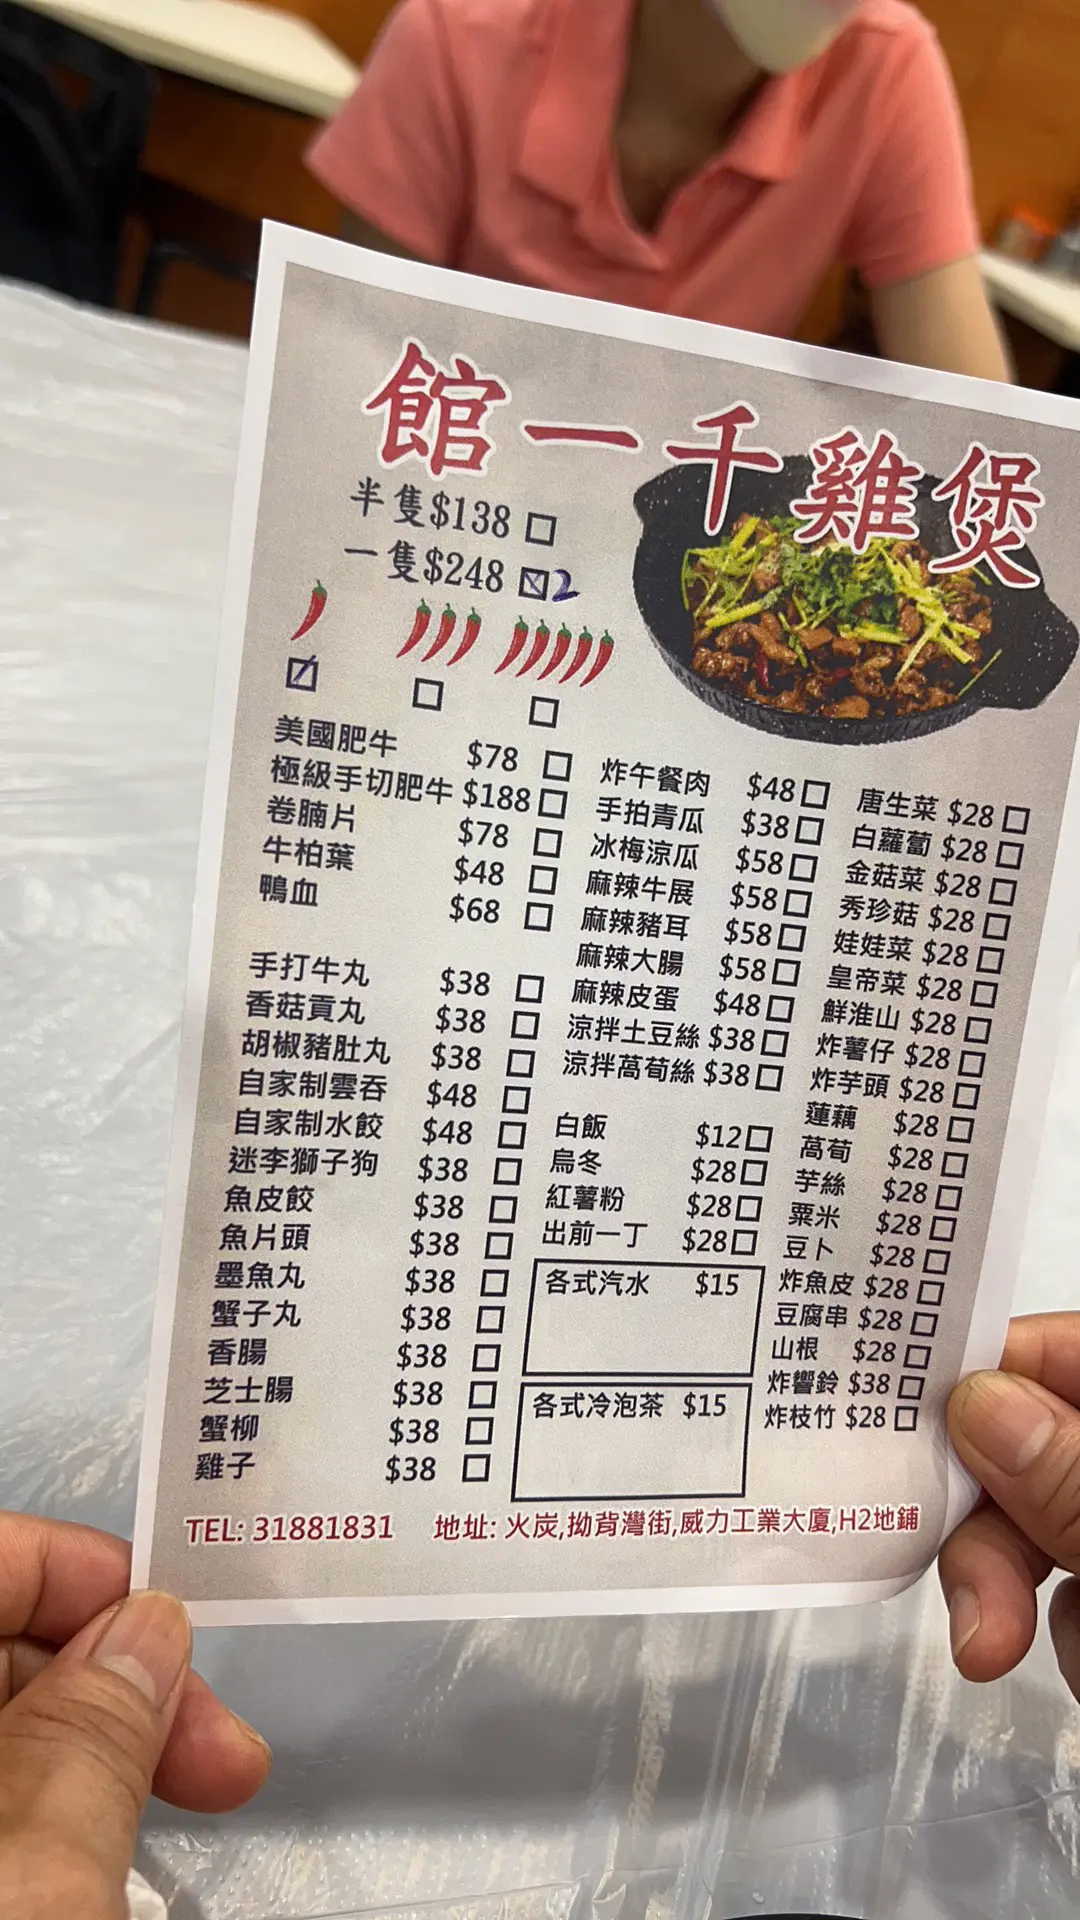 館一千雞煲
半隻$138
一隻$248 2
美國肥牛 $78
極級手切肥牛 $188
卷腩片 $78
牛柏葉 $48
鴨血 $68
手打牛丸 $38
香菇貢丸 $38
胡椒豬肚丸 $38
自家制雲吞 $48
自家制水餃 $48
迷李獅子狗 $38
魚皮餃 $38
魚片頭 $38
墨魚丸 $38
蟹子丸 $38
香腸 $38
芝士腸 $38
蟹柳 $38
雞子 $38
炸午餐肉 $48
手拍青瓜 $38
冰梅涼瓜 $58
麻辣牛展 $58
麻辣豬耳 $58
麻辣大腸 $58
麻辣皮蛋 $48
涼拌土豆絲 $38
涼拌萵荀絲 $38
白飯 $12
烏冬 $28
紅薯粉 $28
出前一丁 $28
各式汽水 $15
各式冷泡茶 $15
唐生菜 $28
白蘿蔔 $28
金菇菜 $28
秀珍菇 $28
娃娃菜 $28
皇帝菜 $28
鮮淮山 $28
炸薯仔 $28
炸芋頭 $28
蓮藕 $28
萵荀 $28
芋絲 $28
粟米 $28
豆卜 $28
炸魚皮 $28
豆腐串 $28
山根 $28
炸響鈴 $38
炸枝竹 $28
TEL: 31881831 地址: 火炭,拗背灣街,威力工業大廈,H2地鋪